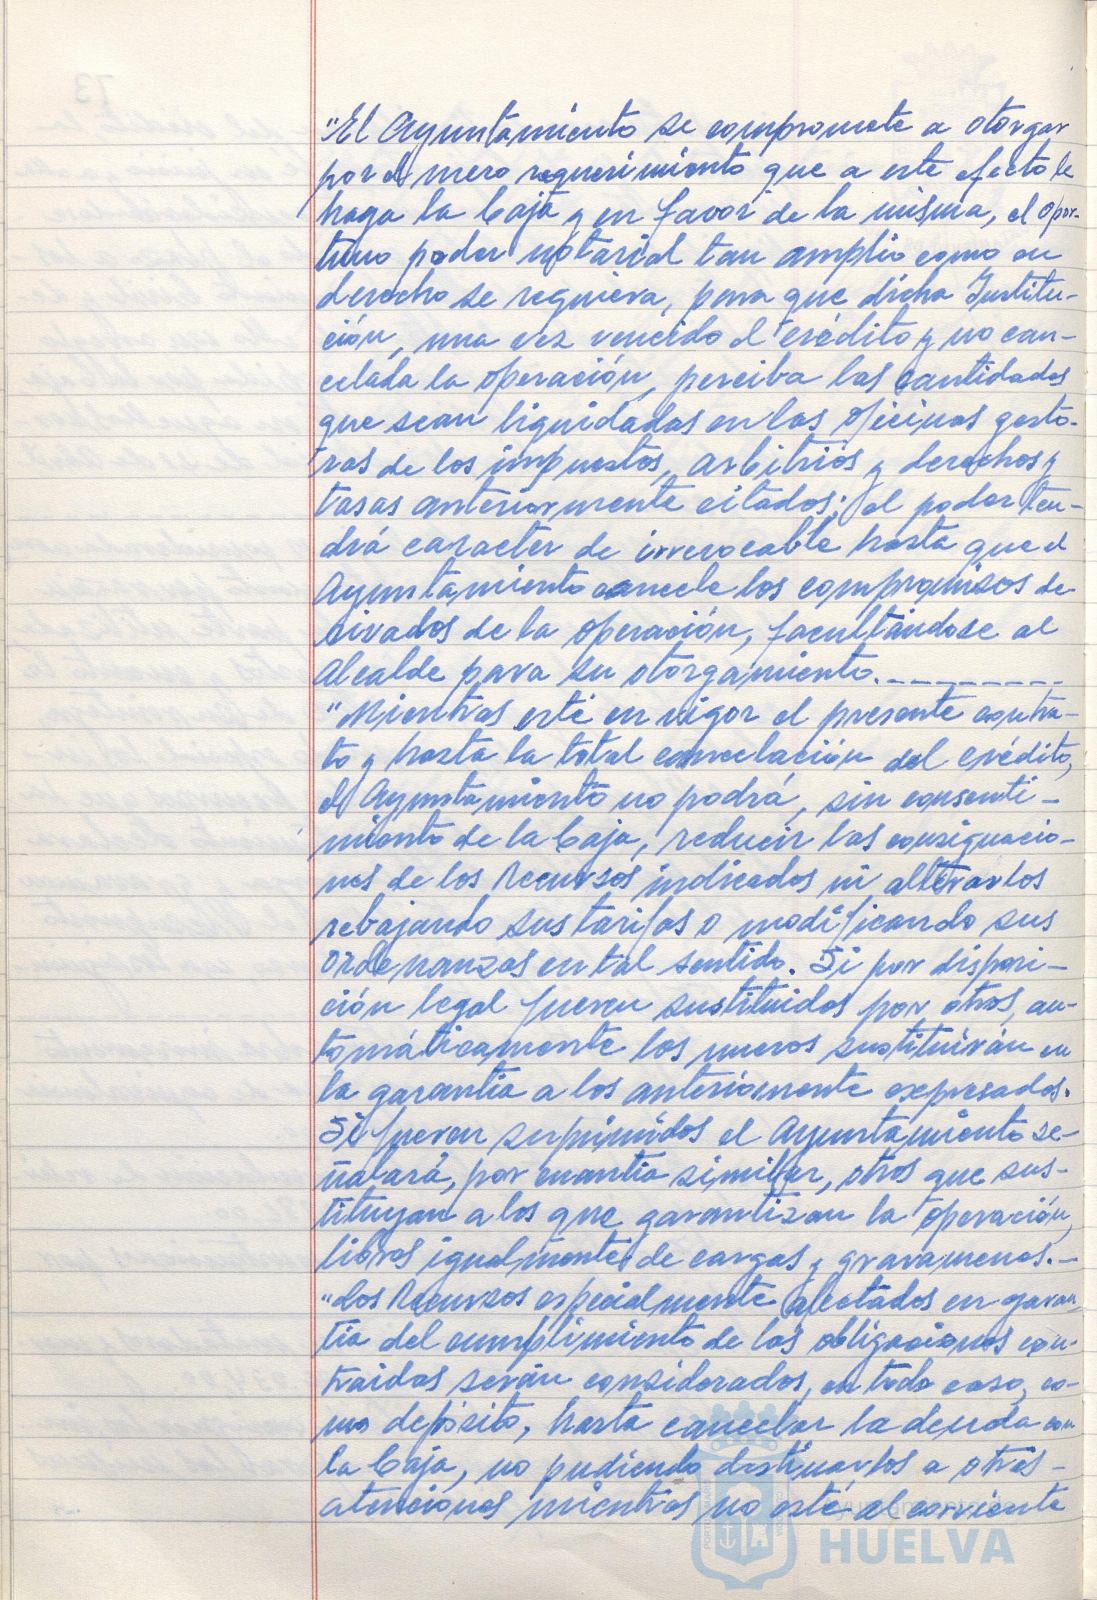 "El Ayuntamiento se compromete a otorgar
por el mero requerimiento que a este efecto le
haga la Caja y en favor de la misma, el opor-
tuno poder notarial tan amplio como en
derecho se requiera, para que dicha Institu-
ción, una vez vencido el crédito y no can-
celada la operación, perciba las cantidades
que sean liquidadas en las oficinas gesto-
ras de los impuestos, arbitrios y derechos y
tasas anteriormente citados; el poder ten-
drá caracter de irrevocable hasta que el
Ayuntamiento cancele los compromisos de
rivados de la operación, facultándose al
Alcalde para su otorgamiento.---------
"Mientras esté en vigor el presente contra-
to y hasta la total cancelación del crédito,
el Ayuntamiento no podrá, sin consenti-
miento de la Caja, reducir las consignacio-
nes de los Recursos indicados ni alterarlos
rebajando sus tarifas o modificando sus
Ordenanzas en tal sentido. Si por disposi-
ción legal fueren sustituidos por otros, au-
tomáticamente los nuevos sustituirán en
la garantía a los anteriormente expresados.
Si fueren suprimidos el Ayuntamiento se-
ñalará, por cuantía similar, otros que sus-
tituyan a los que garantizan la operación,
libres igualmente de cargas y gravamenes.-
"Los Recursos especialmente afectados en garan-
tía del cumplimiento de las obligaciones con-
traidas serán considerados, en todo caso, co-
mo depósito, hasta cancelar la deuda con
la Caja, no pudiendo destinarlos a otras-
atenciones mientras no esté al corriente
Ayuntamiento
HUELVA